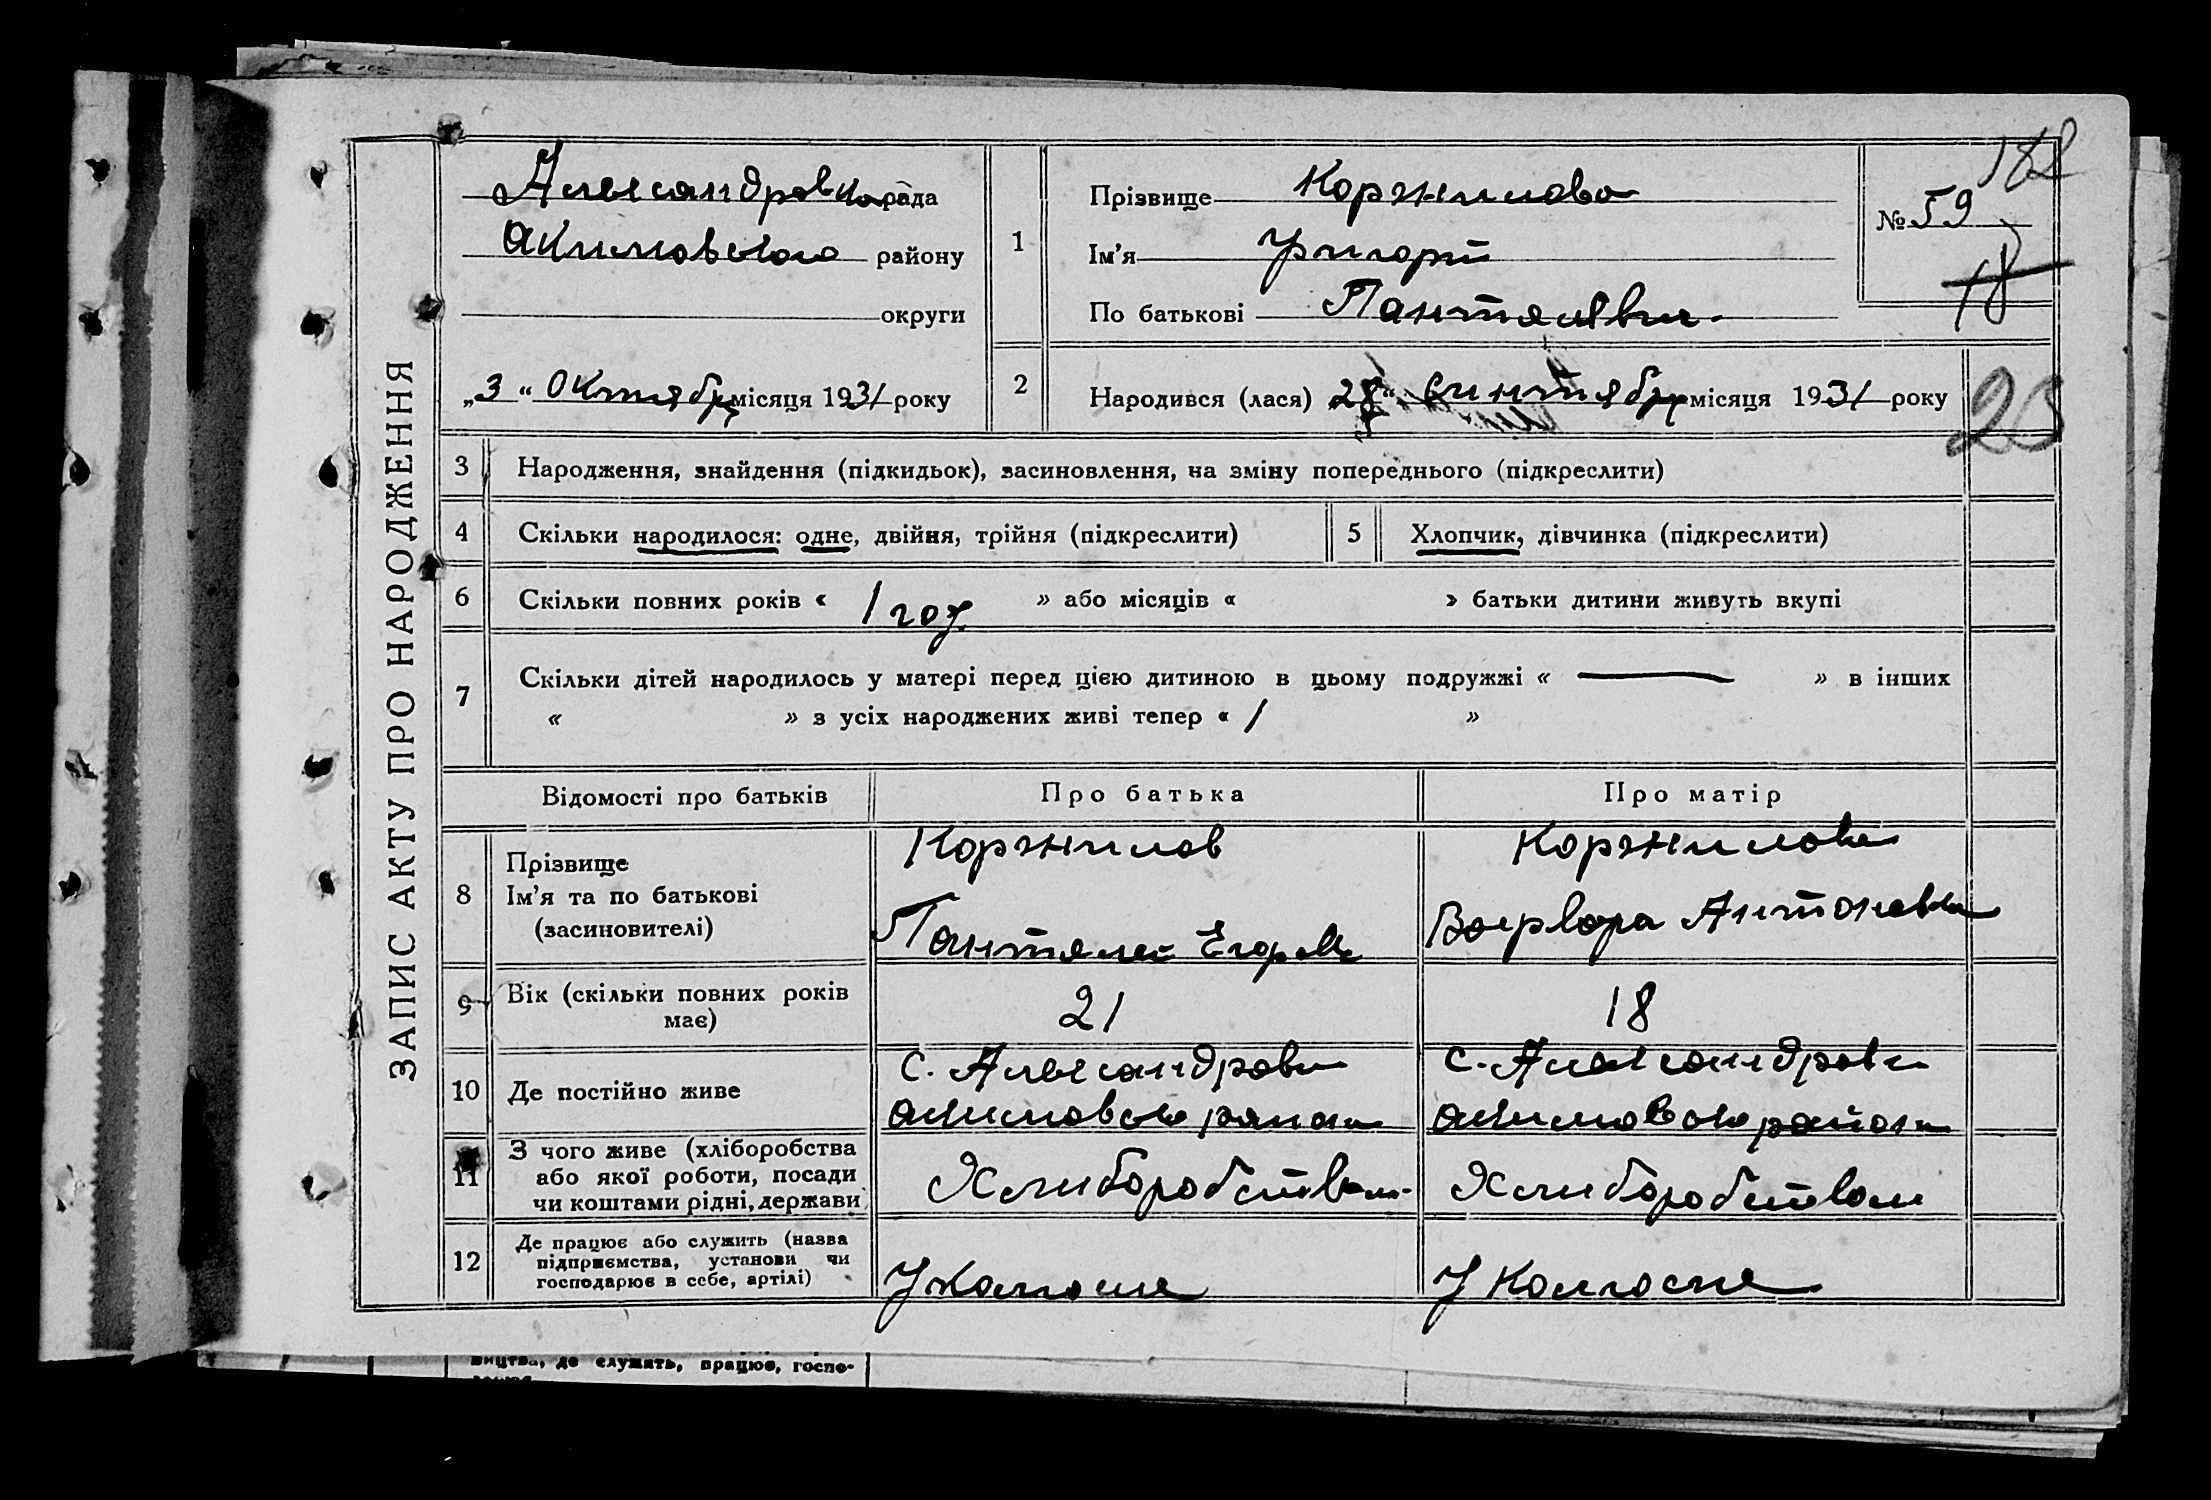 ЗАПИС АКТУ ПРО НАРОДЖЕННЯ
Александровка рада
Акимовского району
округи
„3“ Октября місяця 1931 року
1
Прізвище Коржилово
Ім'я Григорій
По батькові Пантелевич
№ 59
182
18
2
Народився (лася) 28 „ Синтябру місяця 1931 року
23
3 Народження, знайдення (підкидьок), засиновлення, на зміну попереднього (підкреслити)
4 Скільки народилося: одне, двійня, трійня (підкреслити)
5 Хлопчик, дівчинка (підкреслити)
6 Скільки повних років « 1 год » або місяців « » батьки дитини живуть вкупі
7 Скільки дітей народилось у матері перед цією дитиною в цьому подружжі « — » в інших
« » з усіх народжених живі тепер « 1 »
Відомості про батьків
Про батька
Про матір
8
Прізвище
Ім'я та по батькові
(засиновителі)
Коржилов
Пантелей Егоров
Коржилова
Варвара Антоновна
9 Вік (скільки повних років
має)
21
18
10 Де постійно живе
с. Александровки
Акимовского району
с. Александровки
Акимовского району
11
З чого живе (хліборобства
або якої роботи, посади
чи коштами рідні, держави
Хлиборобством
Хлиборобством
12
Де працює або служить (назва
підприємства, установи чи
господарює в себе, артілі)
У колгоспе
У колгоспе
де служить, працює, госпо-